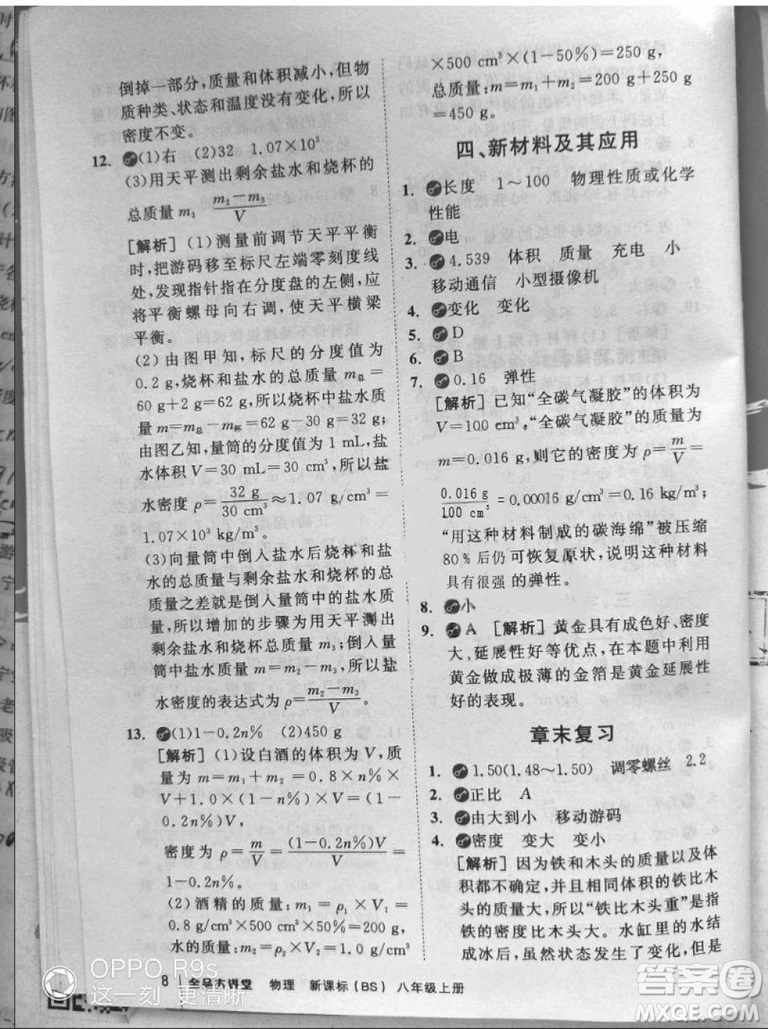 倒掉一部分，质量和体积减小，但物
质种类、状态和温度没有变化，所以
密度不变。
12. (1)右 (2)32 1.07×10³
(3)用天平测出剩余盐水和烧杯的
总质量m₃ (m₂－m₃)/V
[解析] (1)测量前调节天平平衡
时，把游码移至标尺左端零刻度线
处，发现指针指在分度盘的左侧，应
将平衡螺母向右调，使天平横梁
平衡。
(2)由图甲知，标尺的分度值为
0.2 g，烧杯和盐水的总质量 m总＝
60 g＋2 g＝62 g，所以烧杯中盐水质
量 m＝m总－m杯＝62 g－30 g＝32 g；
由图乙知，量筒的分度值为 1 mL，盐
水体积V＝30 mL＝30 cm³，所以盐
水密度 ρ＝32 g/30 cm³≈1.07 g/cm³＝
1.07×10³ kg/m³。
(3)向量筒中倒入盐水后烧杯和水
的总质量与剩余盐水和烧杯的总质
量之差就是倒入量筒中的盐水质
量，所以增加的步骤为用天平测出
剩余盐水和烧杯总质量 m₃；倒入量
筒中盐水质量为 m₂－m₃，所以盐
水密度的表达式为 ρ＝(m₂－m₃)/V。
13. (1)1－0.2n% (2)450 g
[解析] (1)设白酒的体积为V，质
量为 m＝m₁＋m₂＝0.8×n%×
V＋1.0×V×(1－n%)＝(1－
0.2n%)V，
密度为 ρ＝m/V＝(1－0.2n%)V/V＝
1－0.2n%。
(2)酒精的质量：m₁＝ρ₁×V₁＝
0.8 g/cm³×500 cm³×50%＝200 g，
水的质量：m₂＝ρ₂×V₂＝1.0 g/cm³
×500 cm³×(1－50%)＝250 g，
总质量：m＝m₁＋m₂＝200 g＋250 g
＝450 g。
四、新材料及其应用
1. 长度 1～100 物理性质或化学
性能
2. 电
3. 4.539 体积 质量 充电 小
移动通信 小型摄像机
4. 变化 变化
5. D
6. B
7. 0.16 弹性
[解析] 已知“全碳气凝胶”的体积为
V＝100 cm³，“全碳气凝胶”的质量为
m＝0.016 g，则它的密度为 ρ＝m/V＝
0.016 g/100 cm³＝0.00016 g/cm³＝0.16 kg/m³；
“用这种材料制成的碳海绵”被压缩
80%后仍可恢复原状，说明这种材料
具有很强的弹性。
8. 小
9. A [解析] 黄金具有成色好、密度
大、延展性好等优点，在本题中利用
黄金做成极薄的金箔是黄金延展性
好的表现。
章末复习
1. 1.50(1.48～1.50) 调零螺丝 2.2
2. 正比 A
3. 由大到小 移动游码
4. 密度 变大 变小
[解析] 因为铁和木头的质量以及体
积都不确定，并且同体积的铁比木
头的质量大，所以“铁比木头重”是指
铁的密度比木头大。水缸里的水结
成冰后，虽然状态发生了变化，但
8 全品大讲堂 物理 新课标（BS）八年级上册
OPPO R9s
这一刻 更清晰
答案圈
MXQE.COM